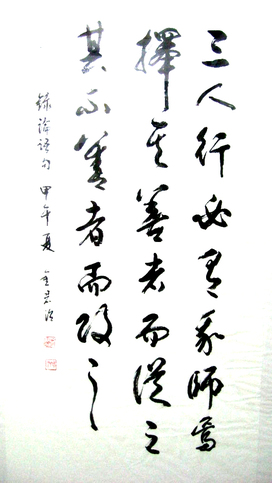 三人行必有我師焉
擇其善者而從之
其不善者而改之
錄論語句 甲午夏